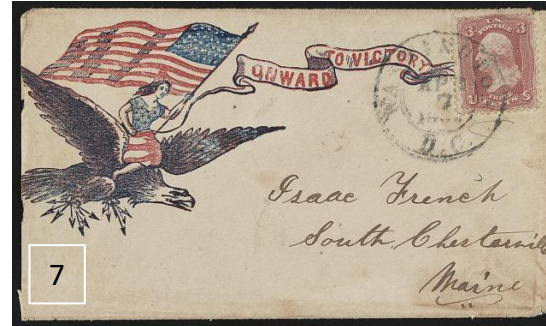 ONWARD TO VICTORY
3 U.S. 3
POSTAGE
D.C.
Isaac French
South Chesterville
Maine
7